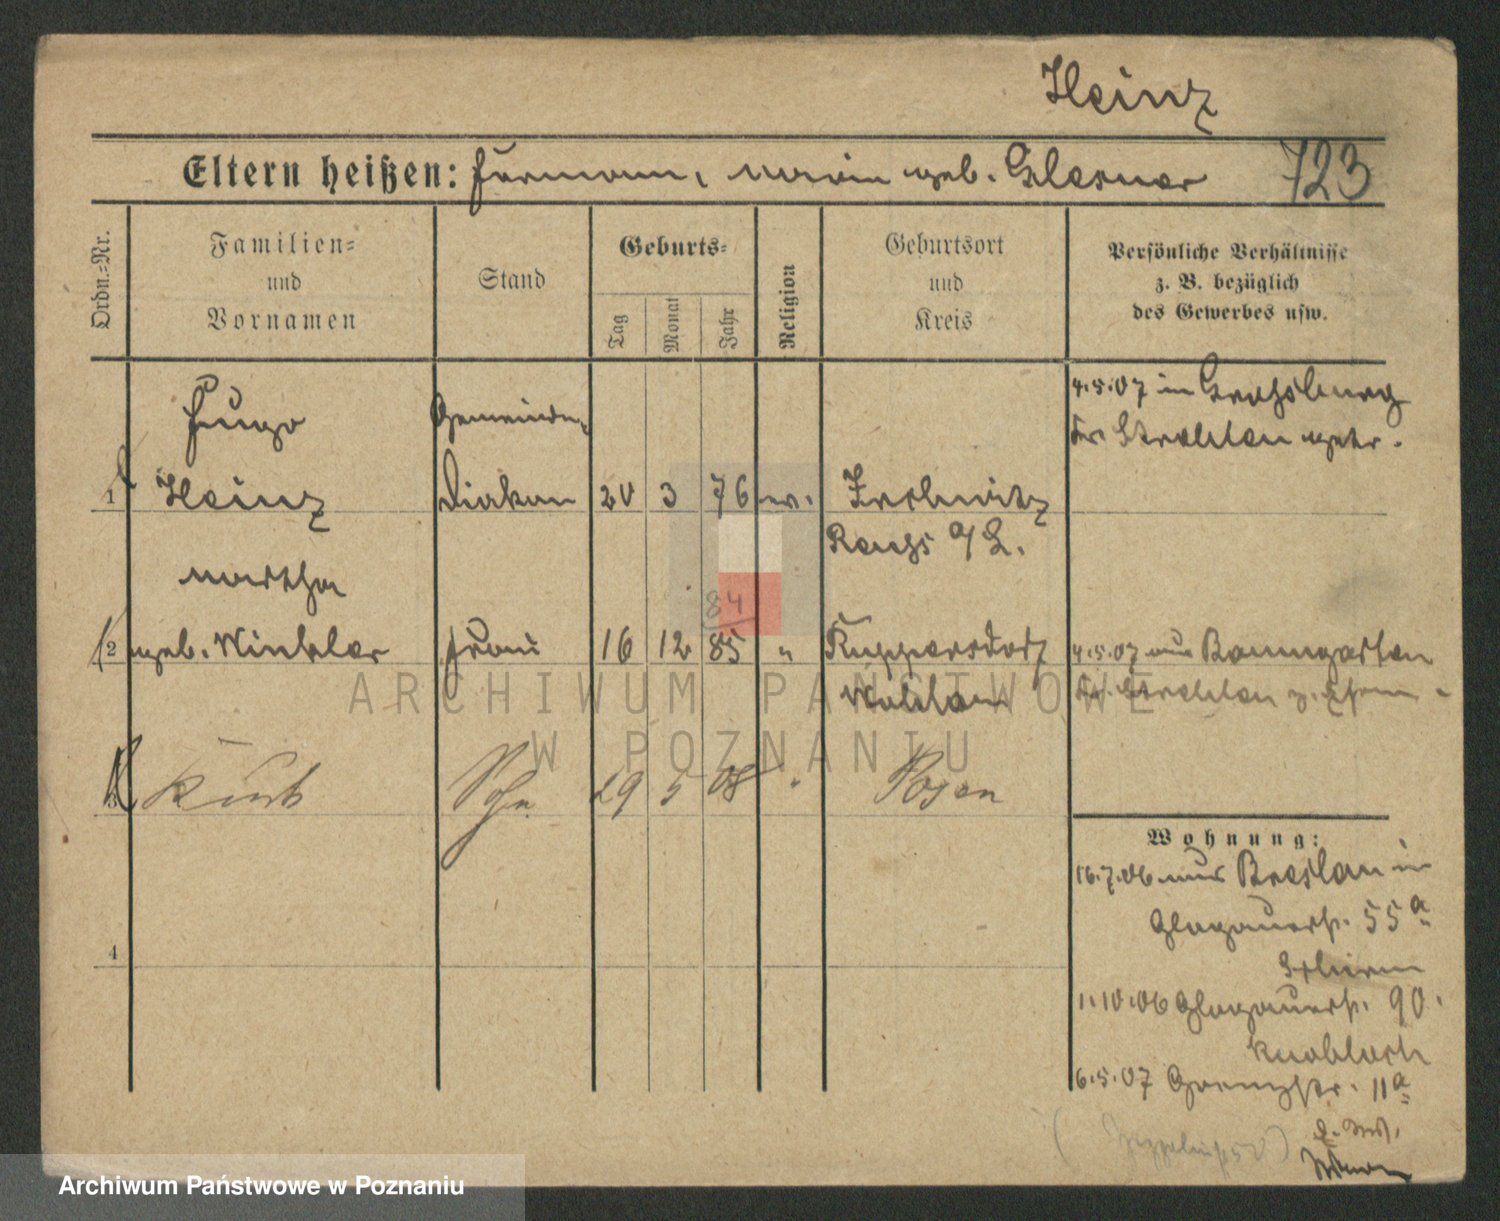 Heinz
Eltern heißen: Hermann, Maria geb. Glesner
723
Ordn.=Nr.
Familien=
und
Vornamen
Stand
Geburts=
Tag
Monat
Jahr
Religion
Geburtsort
und
Kreis
Persönliche Verhältnisse
z. B. bezüglich
des Gewerbes usw.
Hugo
Gemeinde-
4.5.07 in
Kr. Strehlen getr.
1
Heinz
Diakon
20 3 76 ev.
Reuss a/L.
Martha
84
2
geb. Winkler
Frau
16 12 85 "
Ruppersdorf
4.5.07 aus Baumgarten
Wohlau
Kr. Strehlen z. Ehem.
3
Kurt
Sohn
29 5 08 "
Posen
Wohnung:
16.7.06 aus Breslau in
Glogauerstr. 55a
4
1.10.06 Glogauerstr. 90.
Knobloch
6.5.07 Grenzstr. 11a
ARCHIWUM PAŃSTWOWE
W POZNANIU
Archiwum Państwowe w Poznaniu